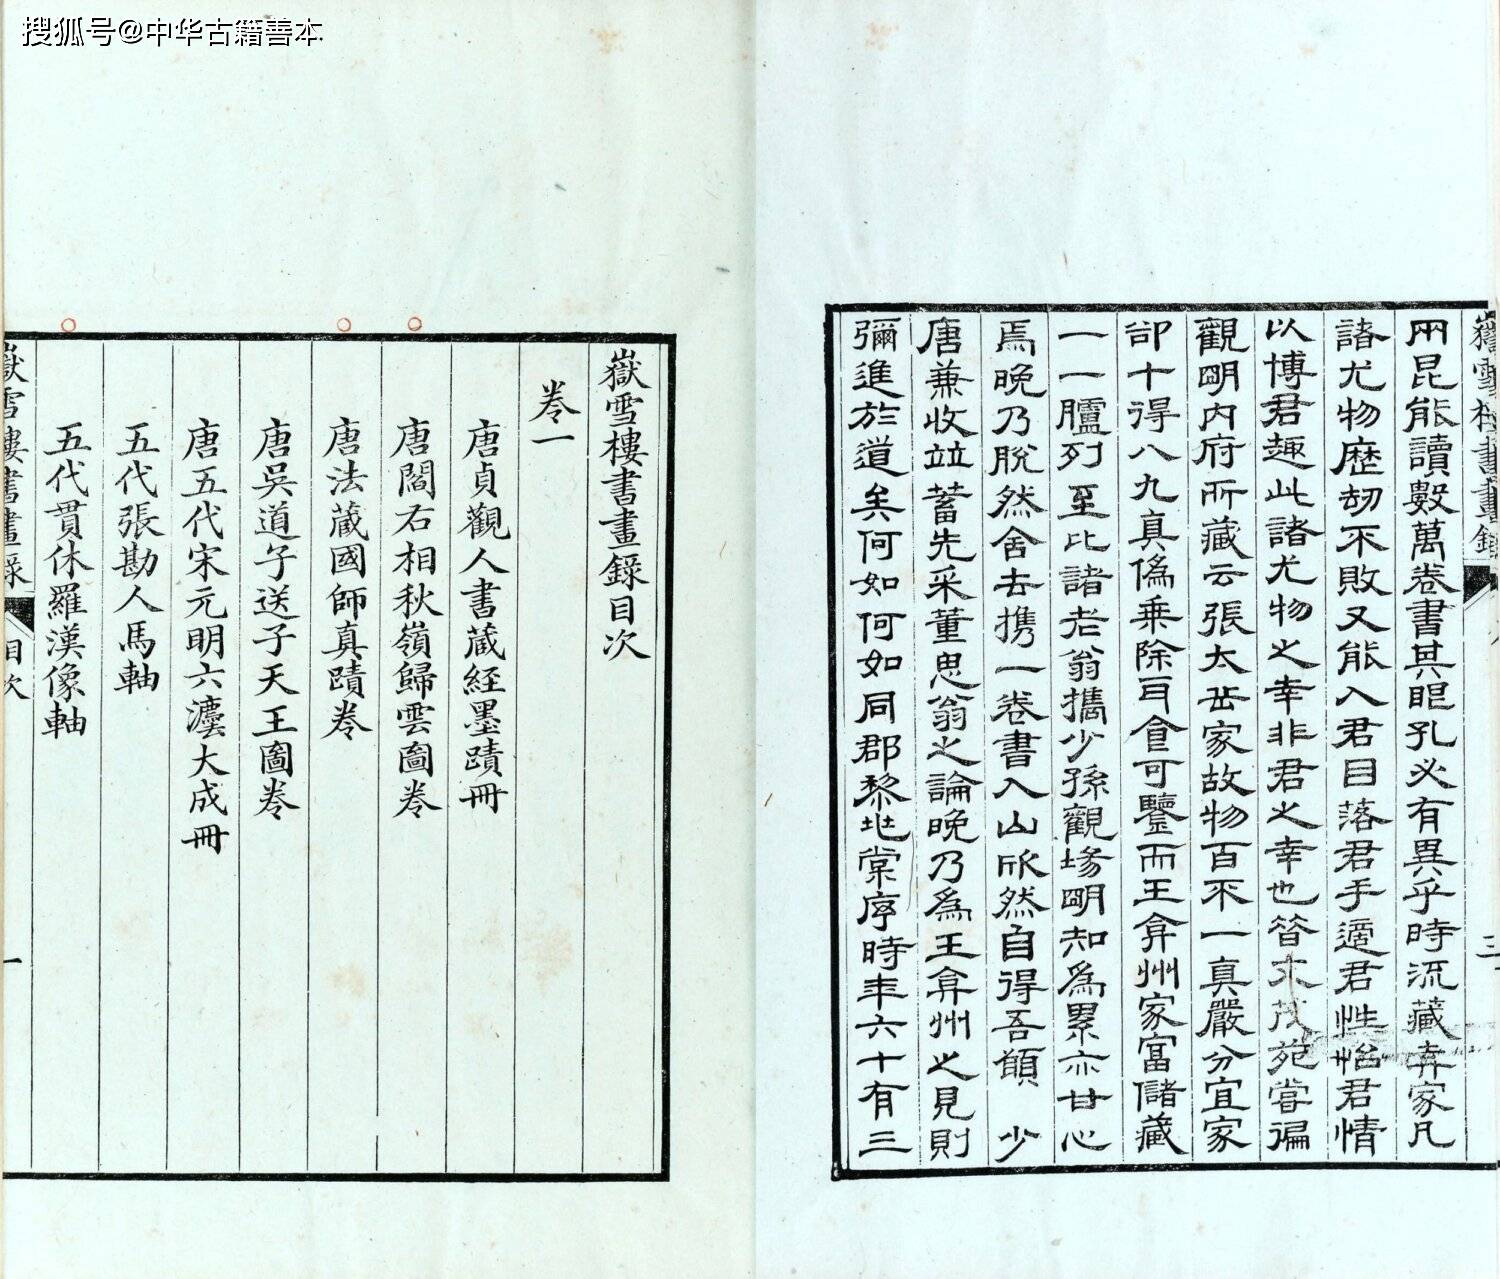 搜狐号@中华古籍善本
兩昆能讀數萬卷書其眼孔必有異乎時流藏弆家凡
諸尤物歷劫不敗又能入君目落君手適君性怡君情
以博君趣此諸尤物之幸非君之幸也昝木茂苑嘗徧
觀明内府所藏云張太岳家故物百不一真嚴分宜家
卻十得八九真偽乘除耳食可鑒而王弇州家富儲藏
一一臚列至比諸老翁攜少孫觀場明知為累亦甘心
焉晚乃脫然舍去携一卷書入山欣然自得吾願 少
唐兼收竝蓄先采董思翁之論晚乃為王弇州之見則
彌進於道矣何如何如同郡黎兆棠序時年六十有三
嶽雪樓書畫錄目次
卷一
唐貞觀人書藏経墨蹟冊
唐閻右相秋嶺歸雲圖卷
唐法藏國師真蹟卷
唐吳道子送子天王圖卷
唐五代宋元明六瀍大成冊
五代張勘人馬軸
五代貫休羅漢像軸
嶽雪樓書畫錄
目次
一